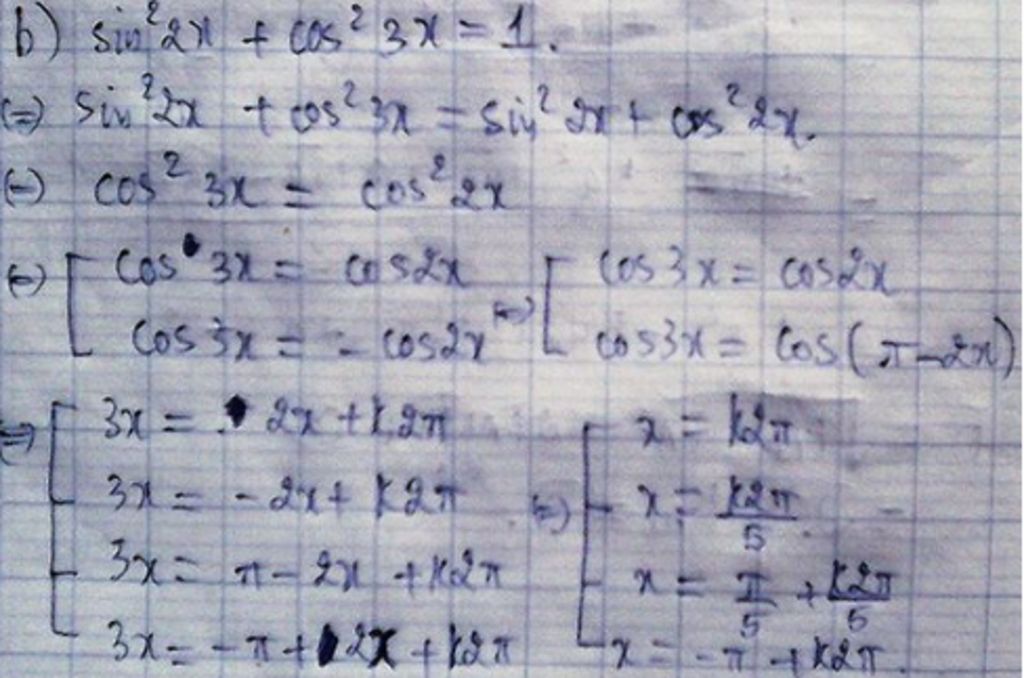 b) sin²2x + cos²3x = 1.
(=) sin²2x + cos²3x = sin²2x + cos²2x.
(=) cos²3x = cos²2x
(=) [ cos3x = cos2x (=) [ cos3x = cos2x
cos3x = - cos2x cos3x = cos(π-2x)
(=) [ 3x = 2x + k2π [ x = k2π
3x = -2x + k2π (=) x = k2π/5
3x = π - 2x + k2π x = π/5 + k2π/5
3x = -π + 2x + k2π x = -π + k2π.